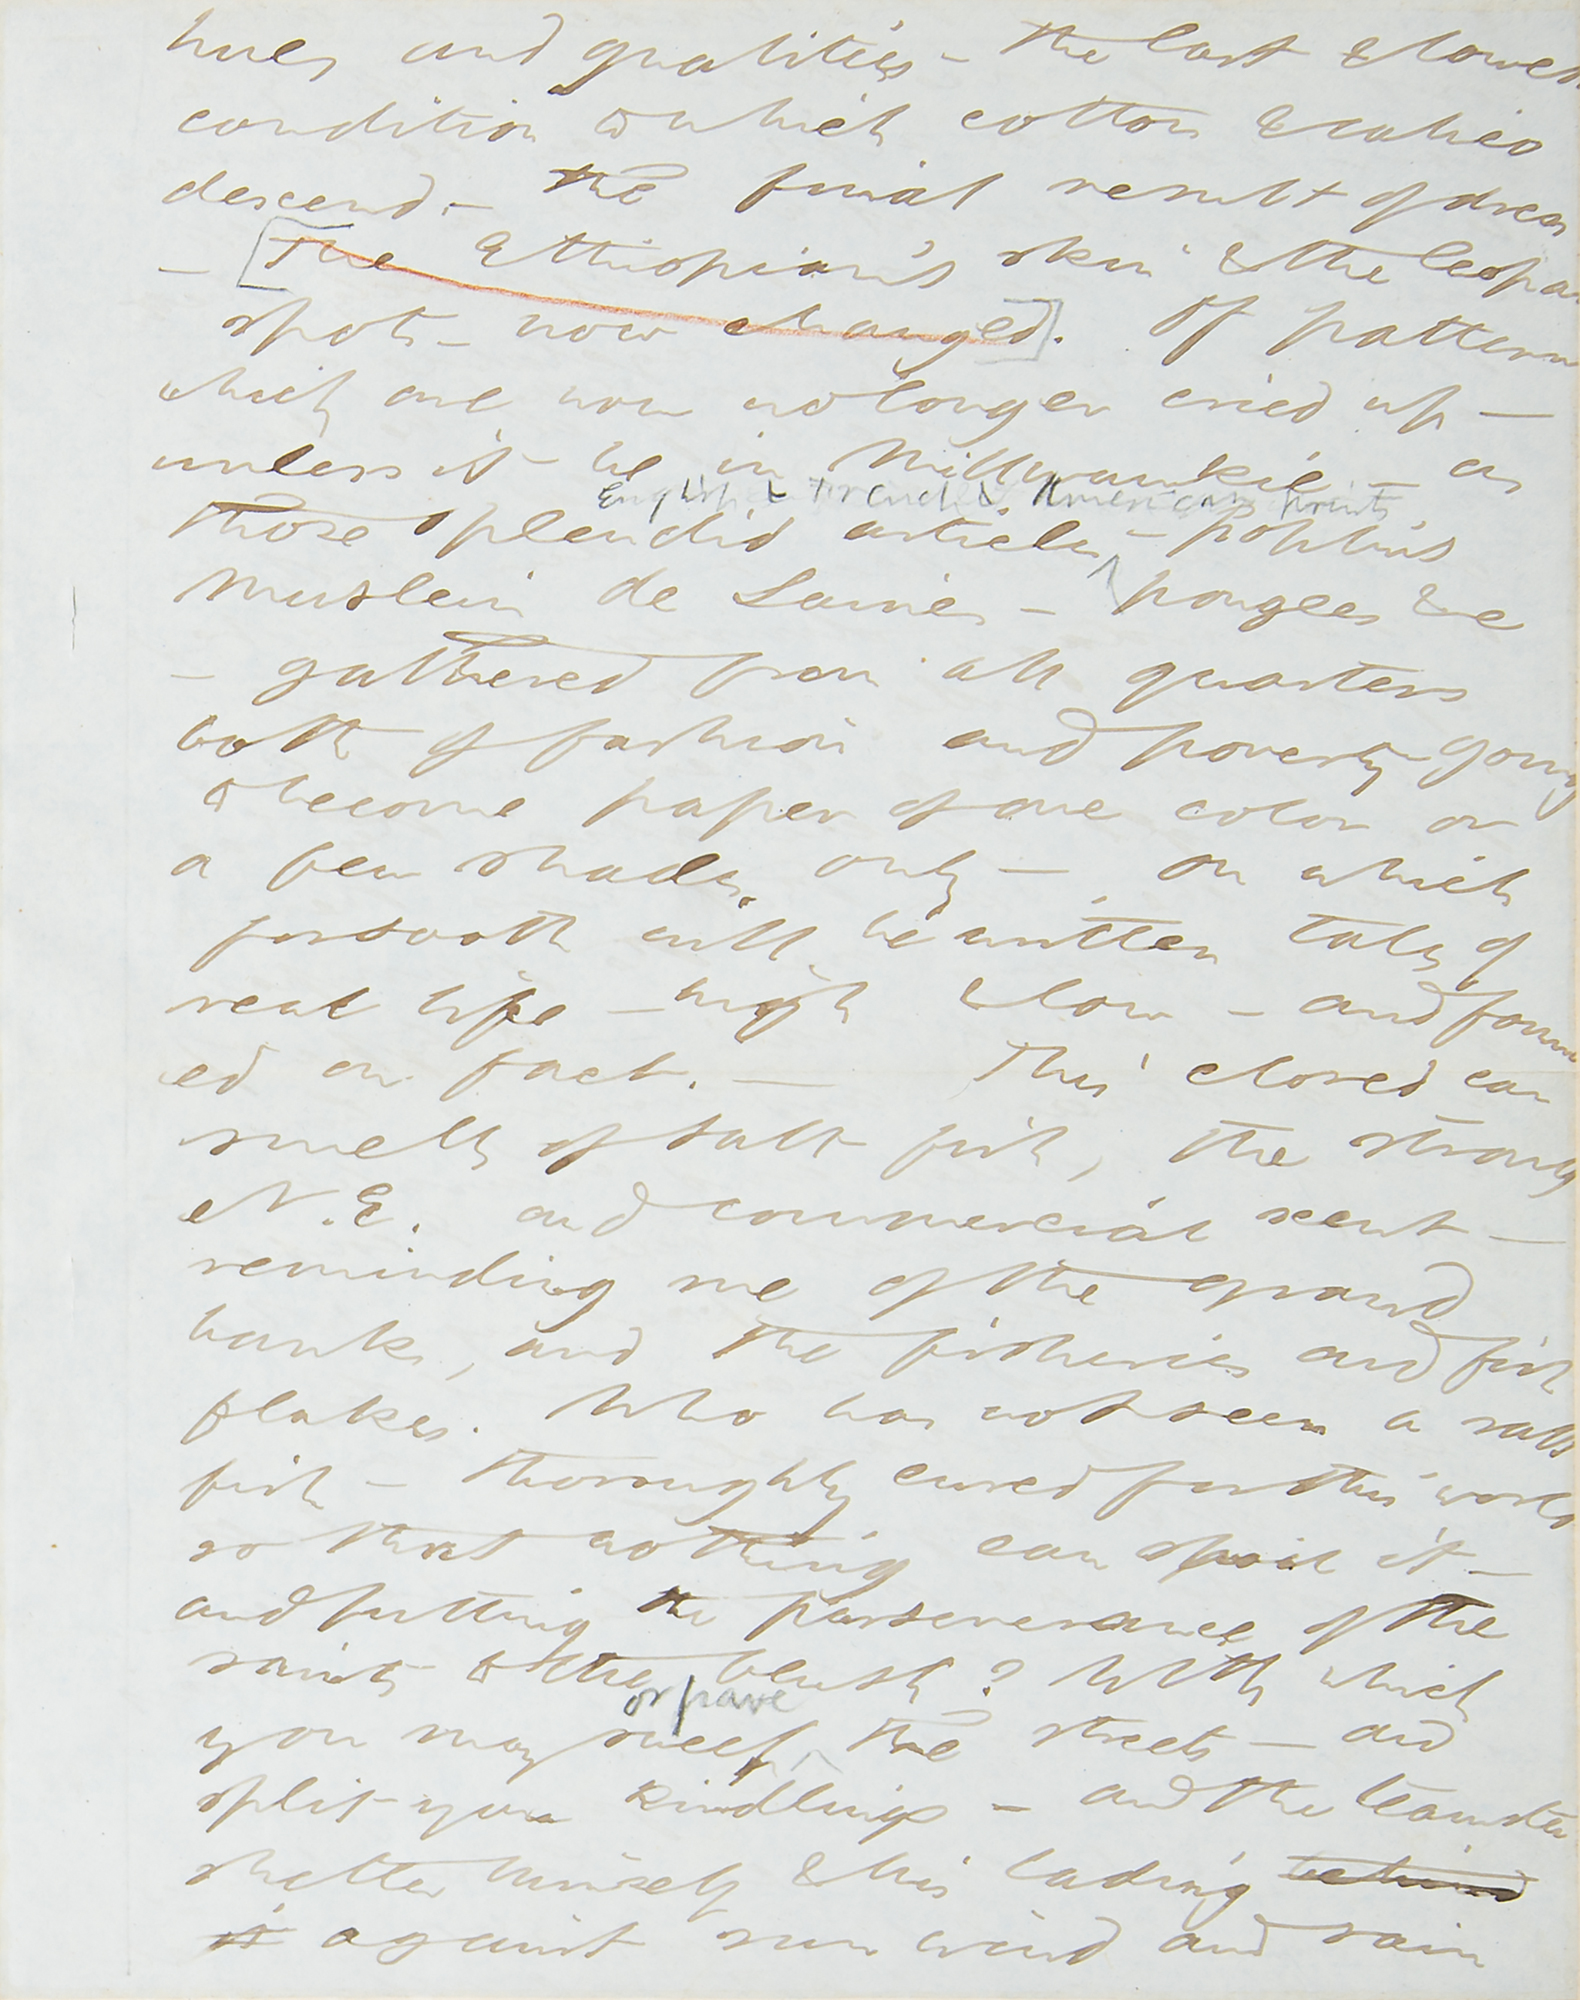 hues and qualities – the last & lowest
condition to which cotton & calico
descend – the final result of dress
– [The Ethiopian's skin & the leopar
spots – now changed]. Of patterns
which are now no longer cried up –
unless it be in Millwaukie – as
English & French & American prints
those splendid articles – poplins
Muslein de Laines – pongees &c
– gathered from all quarters
both of fashion and poverty going
to become paper of one color or
a few shades only – on which
forsooth will be written tales of
real life – high & low – and found
ed on fact. – This closed car
smells of salt fish, the strong
N.E. and commercial scent –
reminding me of the grand
banks, and the fisheries and fish
flakes. Who has not seen a salt
fish – thoroughly cured for this world
so that nothing can spoil it –
and putting the perseverance of the
saints to the blush? With which
or pave
you may sweep the streets – and
split your kindlings – and the teamster
shelter himself & his lading behind
it against sun wind and rain